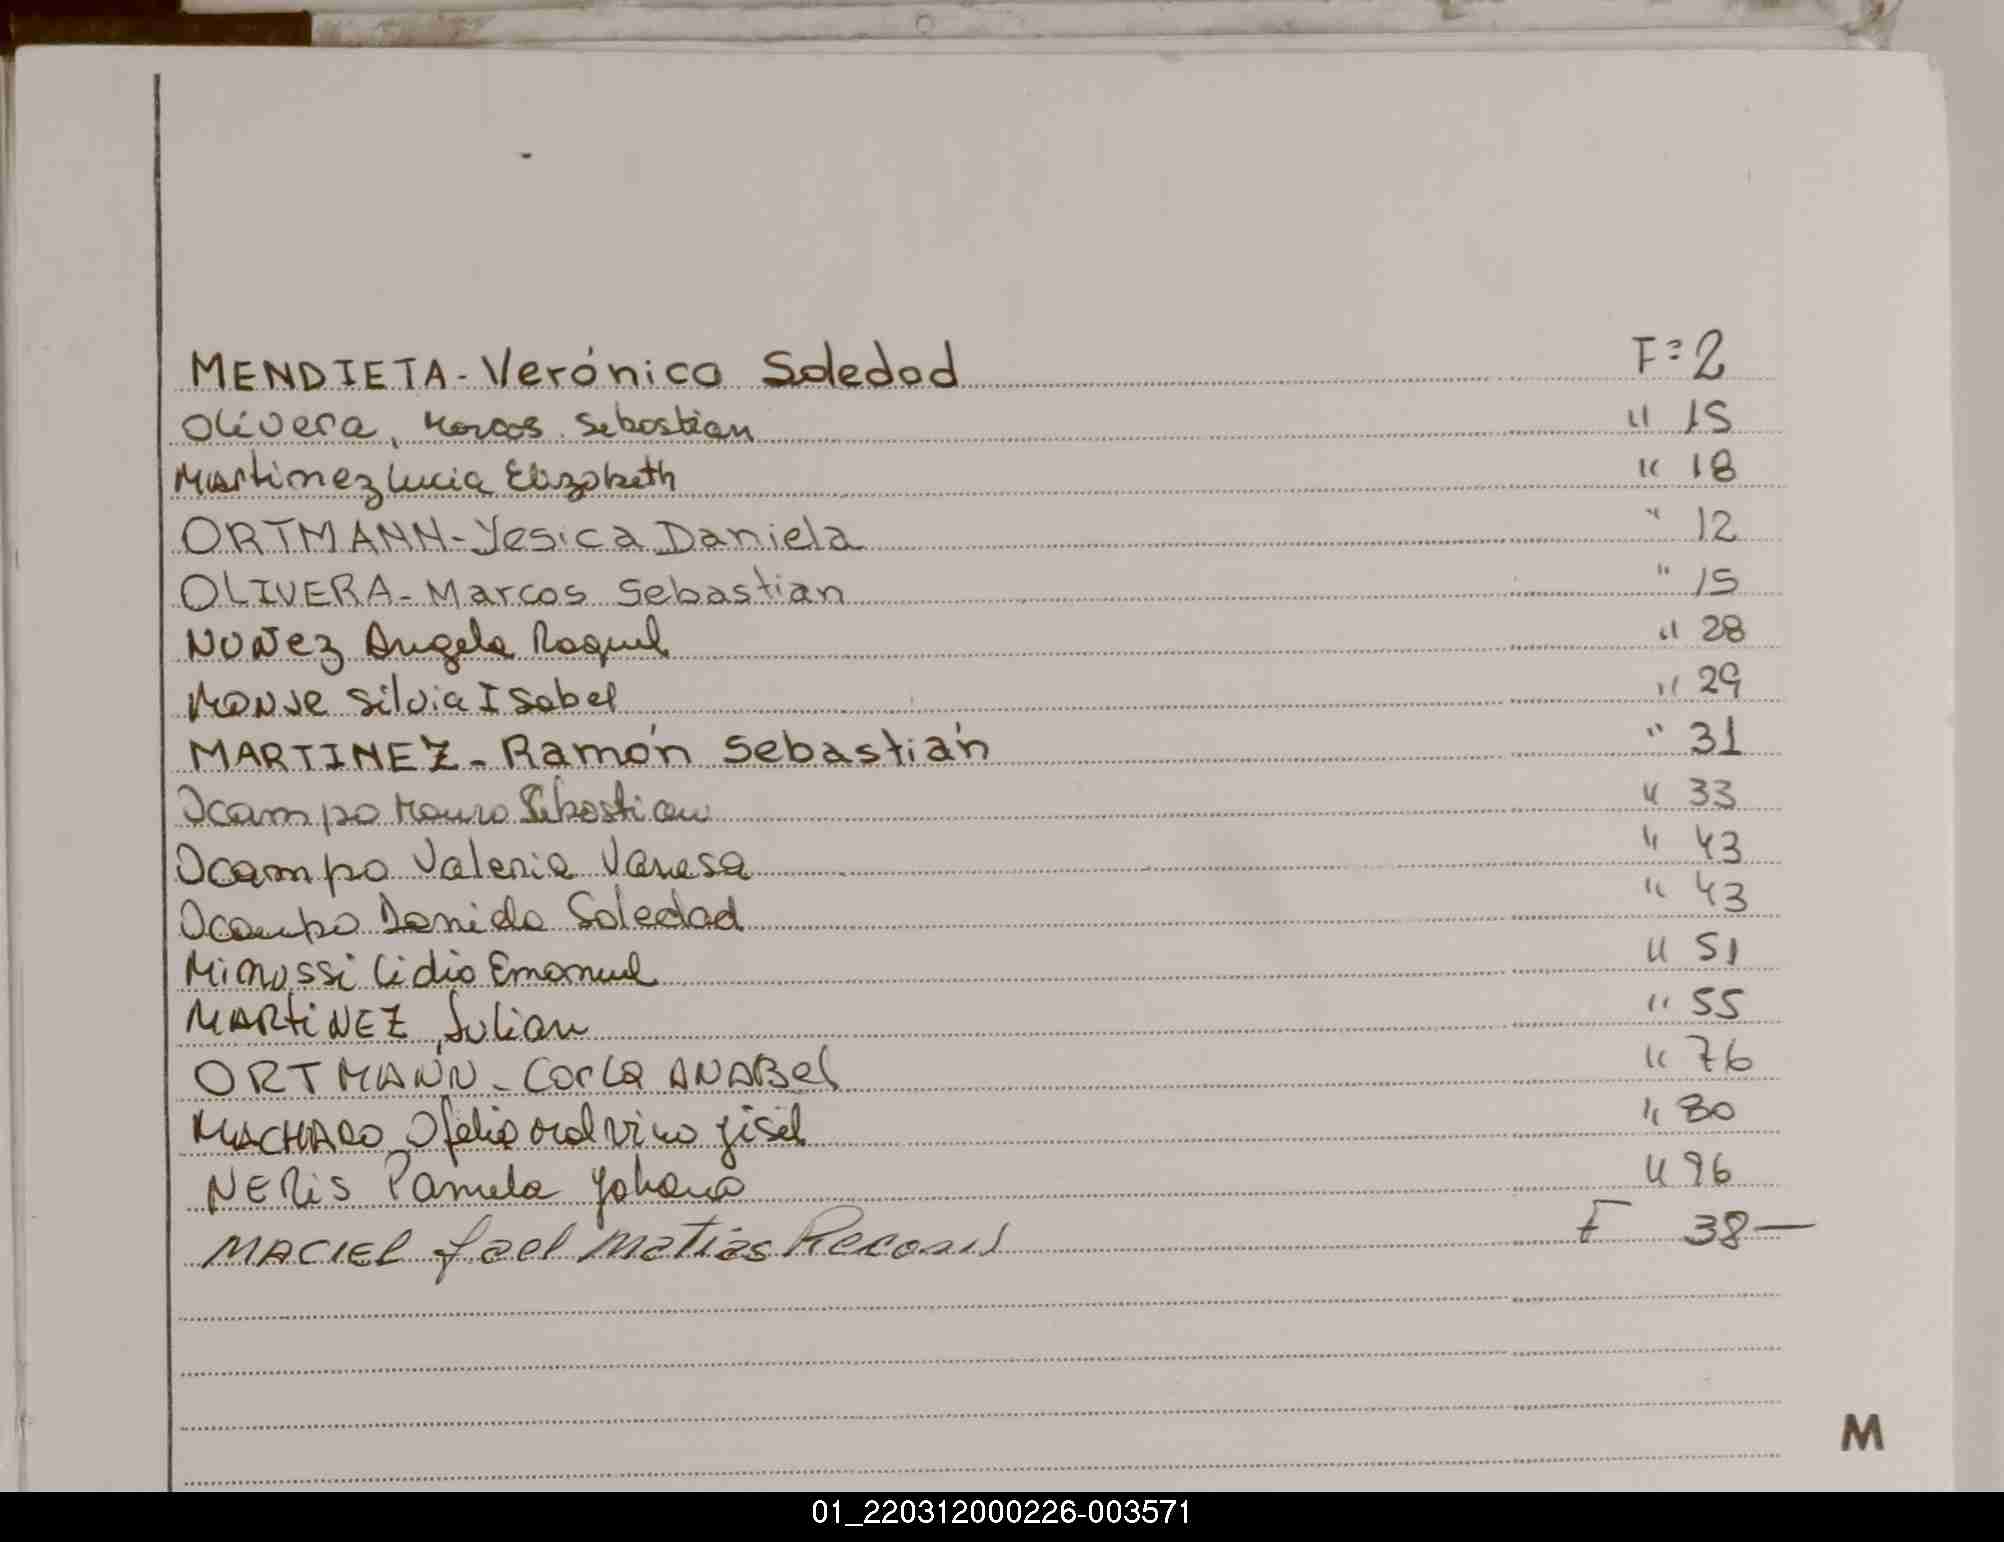 MENDIETA - Verónica Soledad F= 2
Olivera, Marcos Sebastian " 15
Martinez Lucia Elizabeth " 18
ORTMANN - Yesica Daniela " 12
OLIVERA - Marcos Sebastian " 15
NUÑez Angela Raquel " 28
Monje Silvia Isabel " 29
MARTINEZ - Ramón Sebastián " 31
Ocampo Mauro Sebastian " 33
Ocampo Valeria Vanesa " 43
Ocampo Daniela Soledad " 43
Minussi Lidio Emanuel " 51
MARtiNEZ, Julian " 55
ORTMANN - Carla ANABel " 76
MACHADO Ofelia Malvina Jisel " 80
NERis Pamela Yohana " 96
MACIEL Joel Matias F 38—
M
01_220312000226-003571